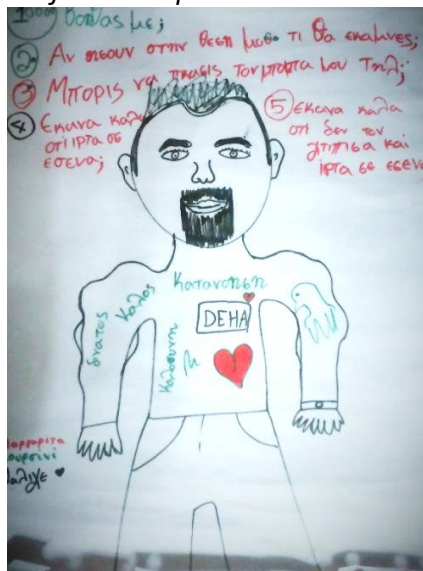 ① βοηθας με;
② Αν ησουν στην θεση μου τι θα εκαμνες;
③ Μπορις να πιασις τον μπαπα μου τηλ;
④ Εκανα καλα
οτι ιρτα σε
εσενα;
⑤ εκανα καλα
οτι δεν τον
χτιπισα και
ιρτα σε εσενα
Κατανοηση
Καλος
δυνατος
Καλοσυνη
DEHA
Μαρραριτα